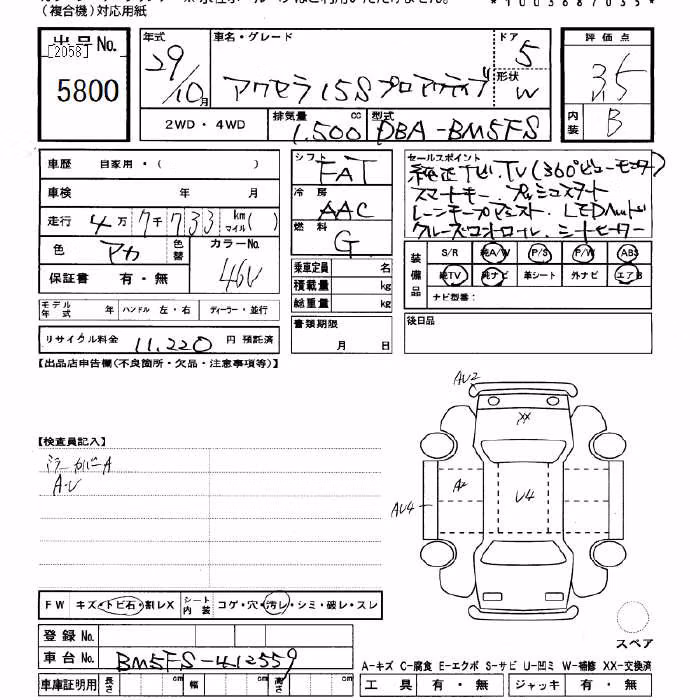 (複合機)対応用紙
*1003687035*
出品No.
[2058]
5800
年式
29/10月
車名・グレード
アクセラ 15S プロアクティブ
ドア
5
形状
W
評価点
3.5
内装
B
2WD・4WD
排気量 1.500 cc
型式
DBA-BM5FS
車歴 自家用・( )
車検 年 月
走行 4万7千733 km マイル( )
色 アカ 色替
カラーNo.
46V
保証書 有・無
シフト
FAT
冷房
AAC
燃料
G
乗車定員 名
積載量 kg
総重量 kg
セールスポイント
純正ナビ.TV(360°ビューモニター)
スマートキー プッシュスタート
レーンキープアシスト. LEDヘッド
クルーズコントロール. シートヒーター
装備品
S/R 純A/W P/S P/W ABS
純TV 純ナビ 革シート 外ナビ エアB
ナビ型番:
モデル年式 年 ハンドル 左・右 ディーラー・並行
書類期限
月 日
後日品
リサイクル料金 11,220 円 預託済
【出品店申告欄(不良箇所・欠品・注意事項等)】
【検査員記入】
ミラーカバーA
A・U
AU2
XX
A2
U4
AU4
FW キズ・トビ石・割レX シート内装 コゲ・穴・汚レ・シミ・破レ・スレ
スペア
登録No.
車台No. BM5FS-412559
A-キズ C-腐食 E-エクボ S-サビ U-凹ミ W-補修 XX-交換済
車庫証明用 長さ cm 幅 cm 高さ cm
工具 有・無 ジャッキ 有・無